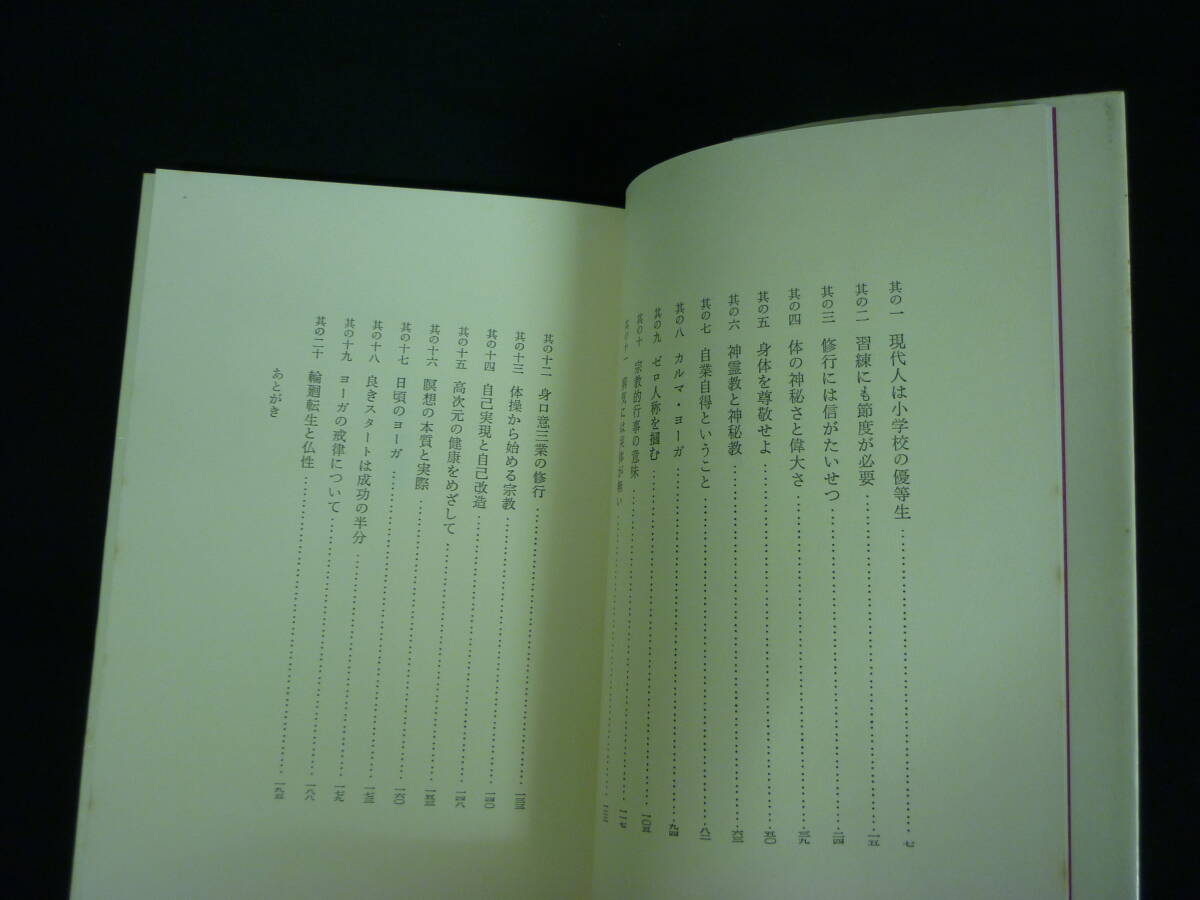 其の一 現代人は小学校の優等生……七
其の二 習練にも節度が必要……一五
其の三 修行には信がたいせつ……二四
其の四 体の神秘さと偉大さ……三九
其の五 身体を尊敬せよ……五〇
其の六 神霊教と神秘教……六三
其の七 自業自得ということ……八二
其の八 カルマ・ヨーガ……九四
其の九 ゼロ人称を摑む……一〇五
其の十 宗教的行事の意味……一一七
其の十一 には実体が無い……
其の十二 身口意三業の修行……一三三
其の十三 体操から始める宗教……一四〇
其の十四 自己実現と自己改造……一四八
其の十五 高次元の健康をめざして……一五三
其の十六 瞑想の本質と実際……一六〇
其の十七 日頃のヨーガ……一七三
其の十八 良きスタートは成功の半分……一七九
其の十九 ヨーガの戒律について……一八八
其の二十 輪廻転生と仏性……一九五
あとがき